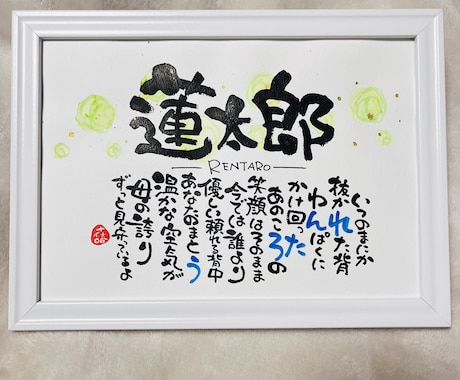 蓮太郎
RENTARO
いつのまにか
抜かれた背
わんぱくに
かけ回った
あのころの
笑顔はそのまま
今では誰より
優しい頼れる背中
あなたのまとう
温かな空気が
母の誇り
ずっと見守っているよ